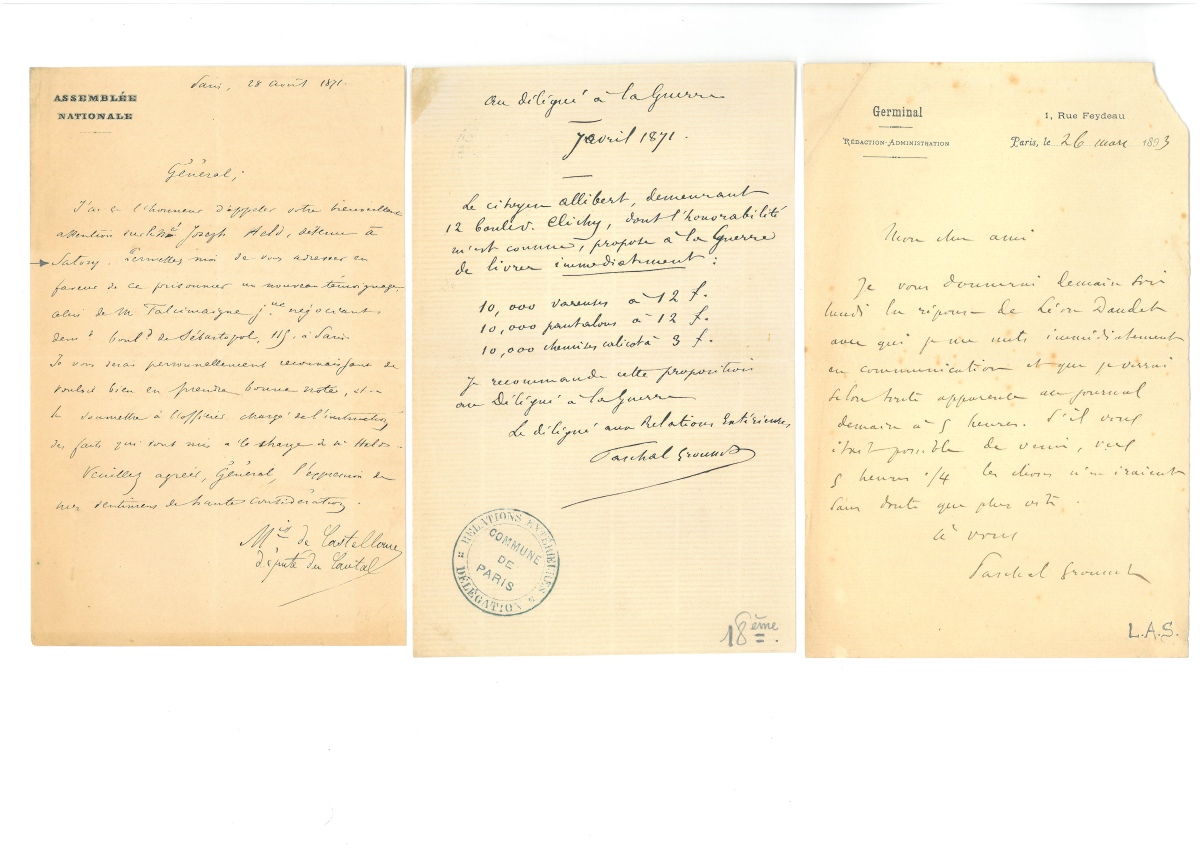 ASSEMBLÉE
NATIONALE
Paris, 28 août 1871.
Général,
J'ai eu l'honneur d'appeler votre bienveillante
attention sur le Sr Joseph Held, détenu à
Satory. Permettez moi de vous adresser en
faveur de ce prisonnier un nouveau témoignage,
celui de M. Falcimaigne jne négociant
demt bould de Sébastopol, 115, à Paris
Je vous serai personnellement reconnaissant de
vouloir bien en prendre bonne note, et de
le soumettre à l'officier chargé de l'instruction
des faits qui sont mis à la charge de Sr Held.
Veuillez agréer, Général, l'expression de
mes sentimens de haute considération.
Mis de Castellane
député du Cantal
au délégué à la Guerre
7 avril 1871.
Le citoyen Allibert, demeurant
12 boulev. Clichy, dont l'honorabilité
m'est connue, propose à la Guerre
de livrer immédiatement :
10,000 vareuses à 12 f.
10,000 pantalons à 12 f.
10,000 chemises calicot à 3 f.
Je recommande cette proposition
au Délégué à la Guerre
Le délégué aux Relations Extérieures,
Paschal Grousset
RELATIONS EXTÉRIEURES
DÉLÉGATION
COMMUNE
DE
PARIS
18ème.
Germinal
RÉDACTION-ADMINISTRATION
1, Rue Feydeau
Paris, le 26 mars 1893
Mon cher ami
Je vous donnerai demain soir
lundi la réponse de Léon Daudet
avec qui je me mets immédiatement
en communication et que je verrai
selon toute apparence au journal
demain à 5 heures. S'il vous
était possible de venir, vers
5 heures 1/4 les choses n'en iraient
sans doute que plus vite.
à vous
Paschal Grousset
L.A.S.